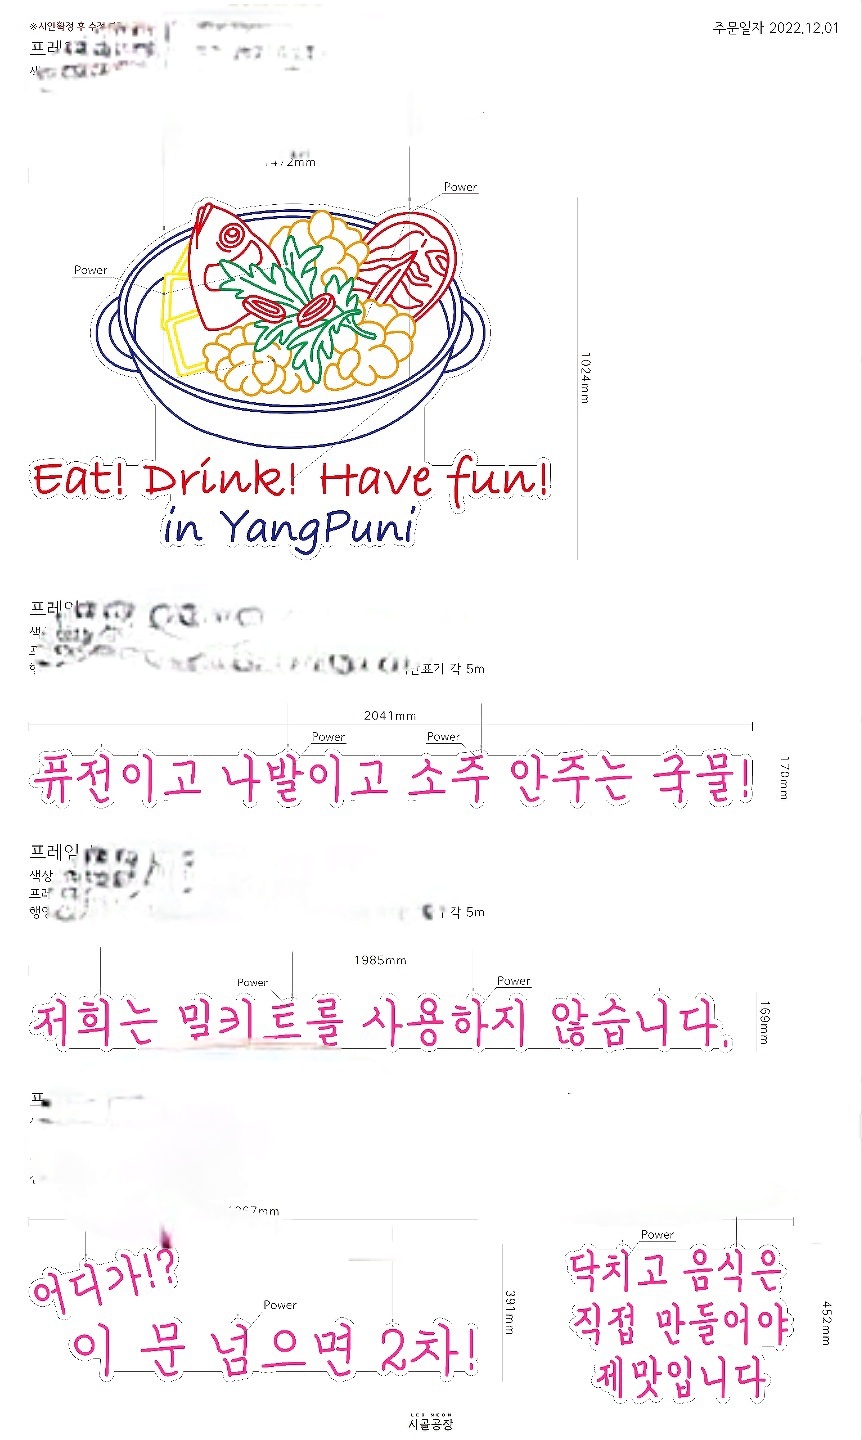 ※시안확정 후 수정
주문일자 2022.12.01
프레
Power
Power
1024mm
Eat! Drink! Have fun!
in YangPuni
프레임
표기 각 5m
2041mm
Power
Power
퓨전이고 나발이고 소주 안주는 국물!
170mm
프레임
색상
각 5m
1985mm
Power
Power
저희는 밀키트를 사용하지 않습니다.
169mm
어디가!?
Power
이 문 넘으면 2차!
391mm
Power
닥치고 음식은
직접 만들어야
제맛입니다
452mm
LED NEON
시골공장